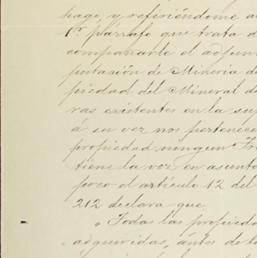 hago, y refiriéndome a
1er párrafo que trata d
compañarle el adjun
putación de Minería d
piedad del Mineral d
ras existentes en la su
á su vez nos pertenece
propiedad ningun
tiene la voz en asunto
poco el artículo 12 del
212 declara que
"Todas las propieda
adqueridas, ántes de l